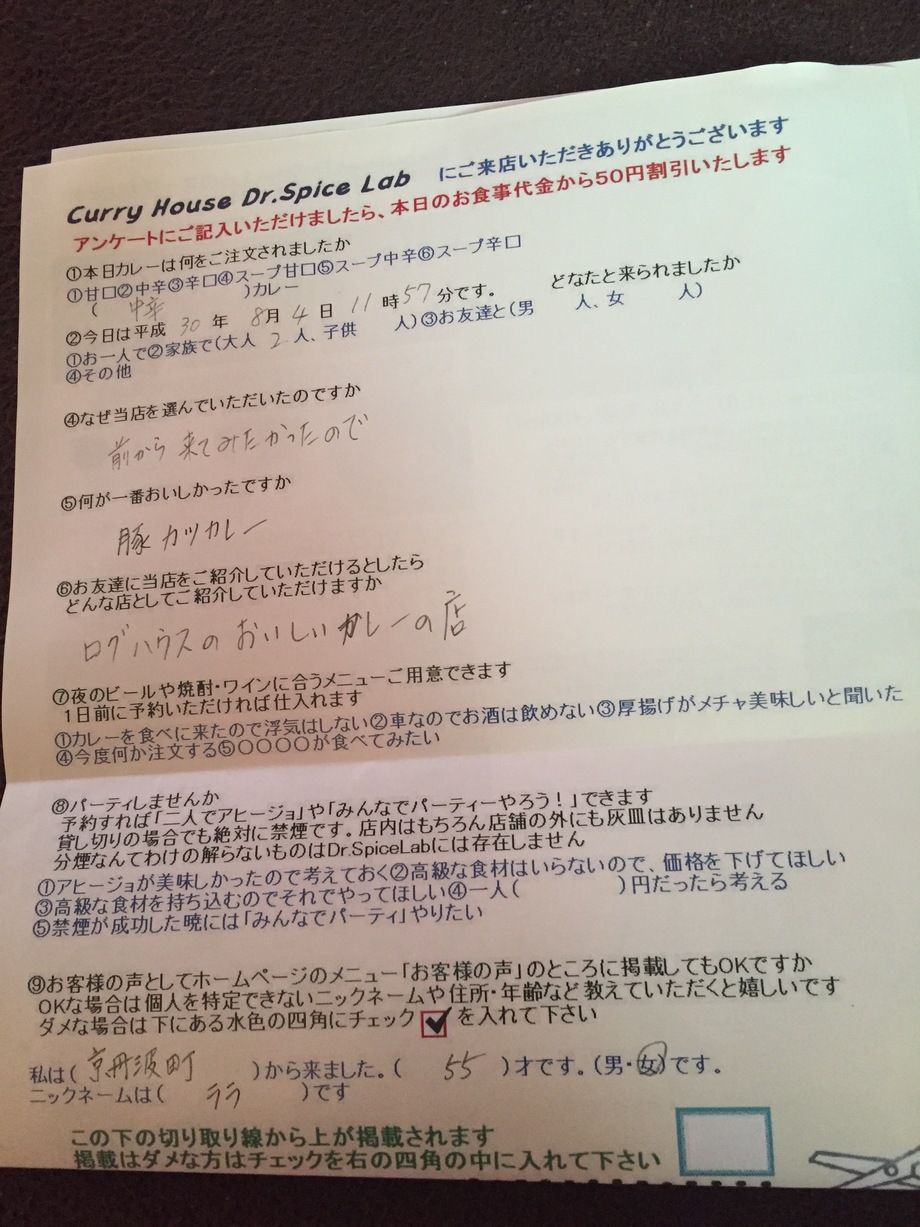 Curry House Dr.Spice Lab にご来店いただきありがとうございます
アンケートにご記入いただけましたら、本日のお食事代金から50円割引いたします
①本日カレーは何をご注文されましたか
①甘口②中辛③辛口④スープ甘口⑤スープ中辛⑥スープ辛口
( 中辛 )カレー
②今日は平成 30 年 8月 4 日 11 時57分です。 どなたと来られましたか
①お一人で②家族で(大人 2 人、子供 人)③お友達と(男 人、女 人)
④その他
④なぜ当店を選んでいただいたのですか
前から来てみたかったので
⑤何が一番おいしかったですか
豚カツカレー
⑥お友達に当店をご紹介していただけるとしたら
どんな店としてご紹介していただけますか
ログハウスのおいしいカレーの店
⑦夜のビールや焼酎・ワインに合うメニューご用意できます
1日前に予約いただければ仕入れます
①カレーを食べに来たので浮気はしない②車なのでお酒は飲めない③厚揚げがメチャ美味しいと聞いた
④今度何か注文する⑤〇〇〇〇が食べてみたい
⑧パーティしませんか
予約すれば「二人でアヒージョ」や「みんなでパーティーやろう！」できます
貸し切りの場合でも絶対に禁煙です。店内はもちろん店舗の外にも灰皿はありません
分煙なんてわけの解らないものはDr.SpiceLabには存在しません
①アヒージョが美味しかったので考えておく②高級な食材はいらないので、価格を下げてほしい
③高級な食材を持ち込むのでそれでやってほしい④一人( )円だったら考える
⑤禁煙が成功した暁には「みんなでパーティ」やりたい
⑨お客様の声としてホームページのメニュー「お客様の声」のところに掲載してもOKですか
OKな場合は個人を特定できないニックネームや住所・年齢など教えていただくと嬉しいです
ダメな場合は下にある水色の四角にチェック を入れて下さい
私は( 京丹波町 )から来ました。( 55 )才です。(男・女)です。
ニックネームは( ララ )です
この下の切り取り線から上が掲載されます
掲載はダメな方はチェックを右の四角の中に入れて下さい